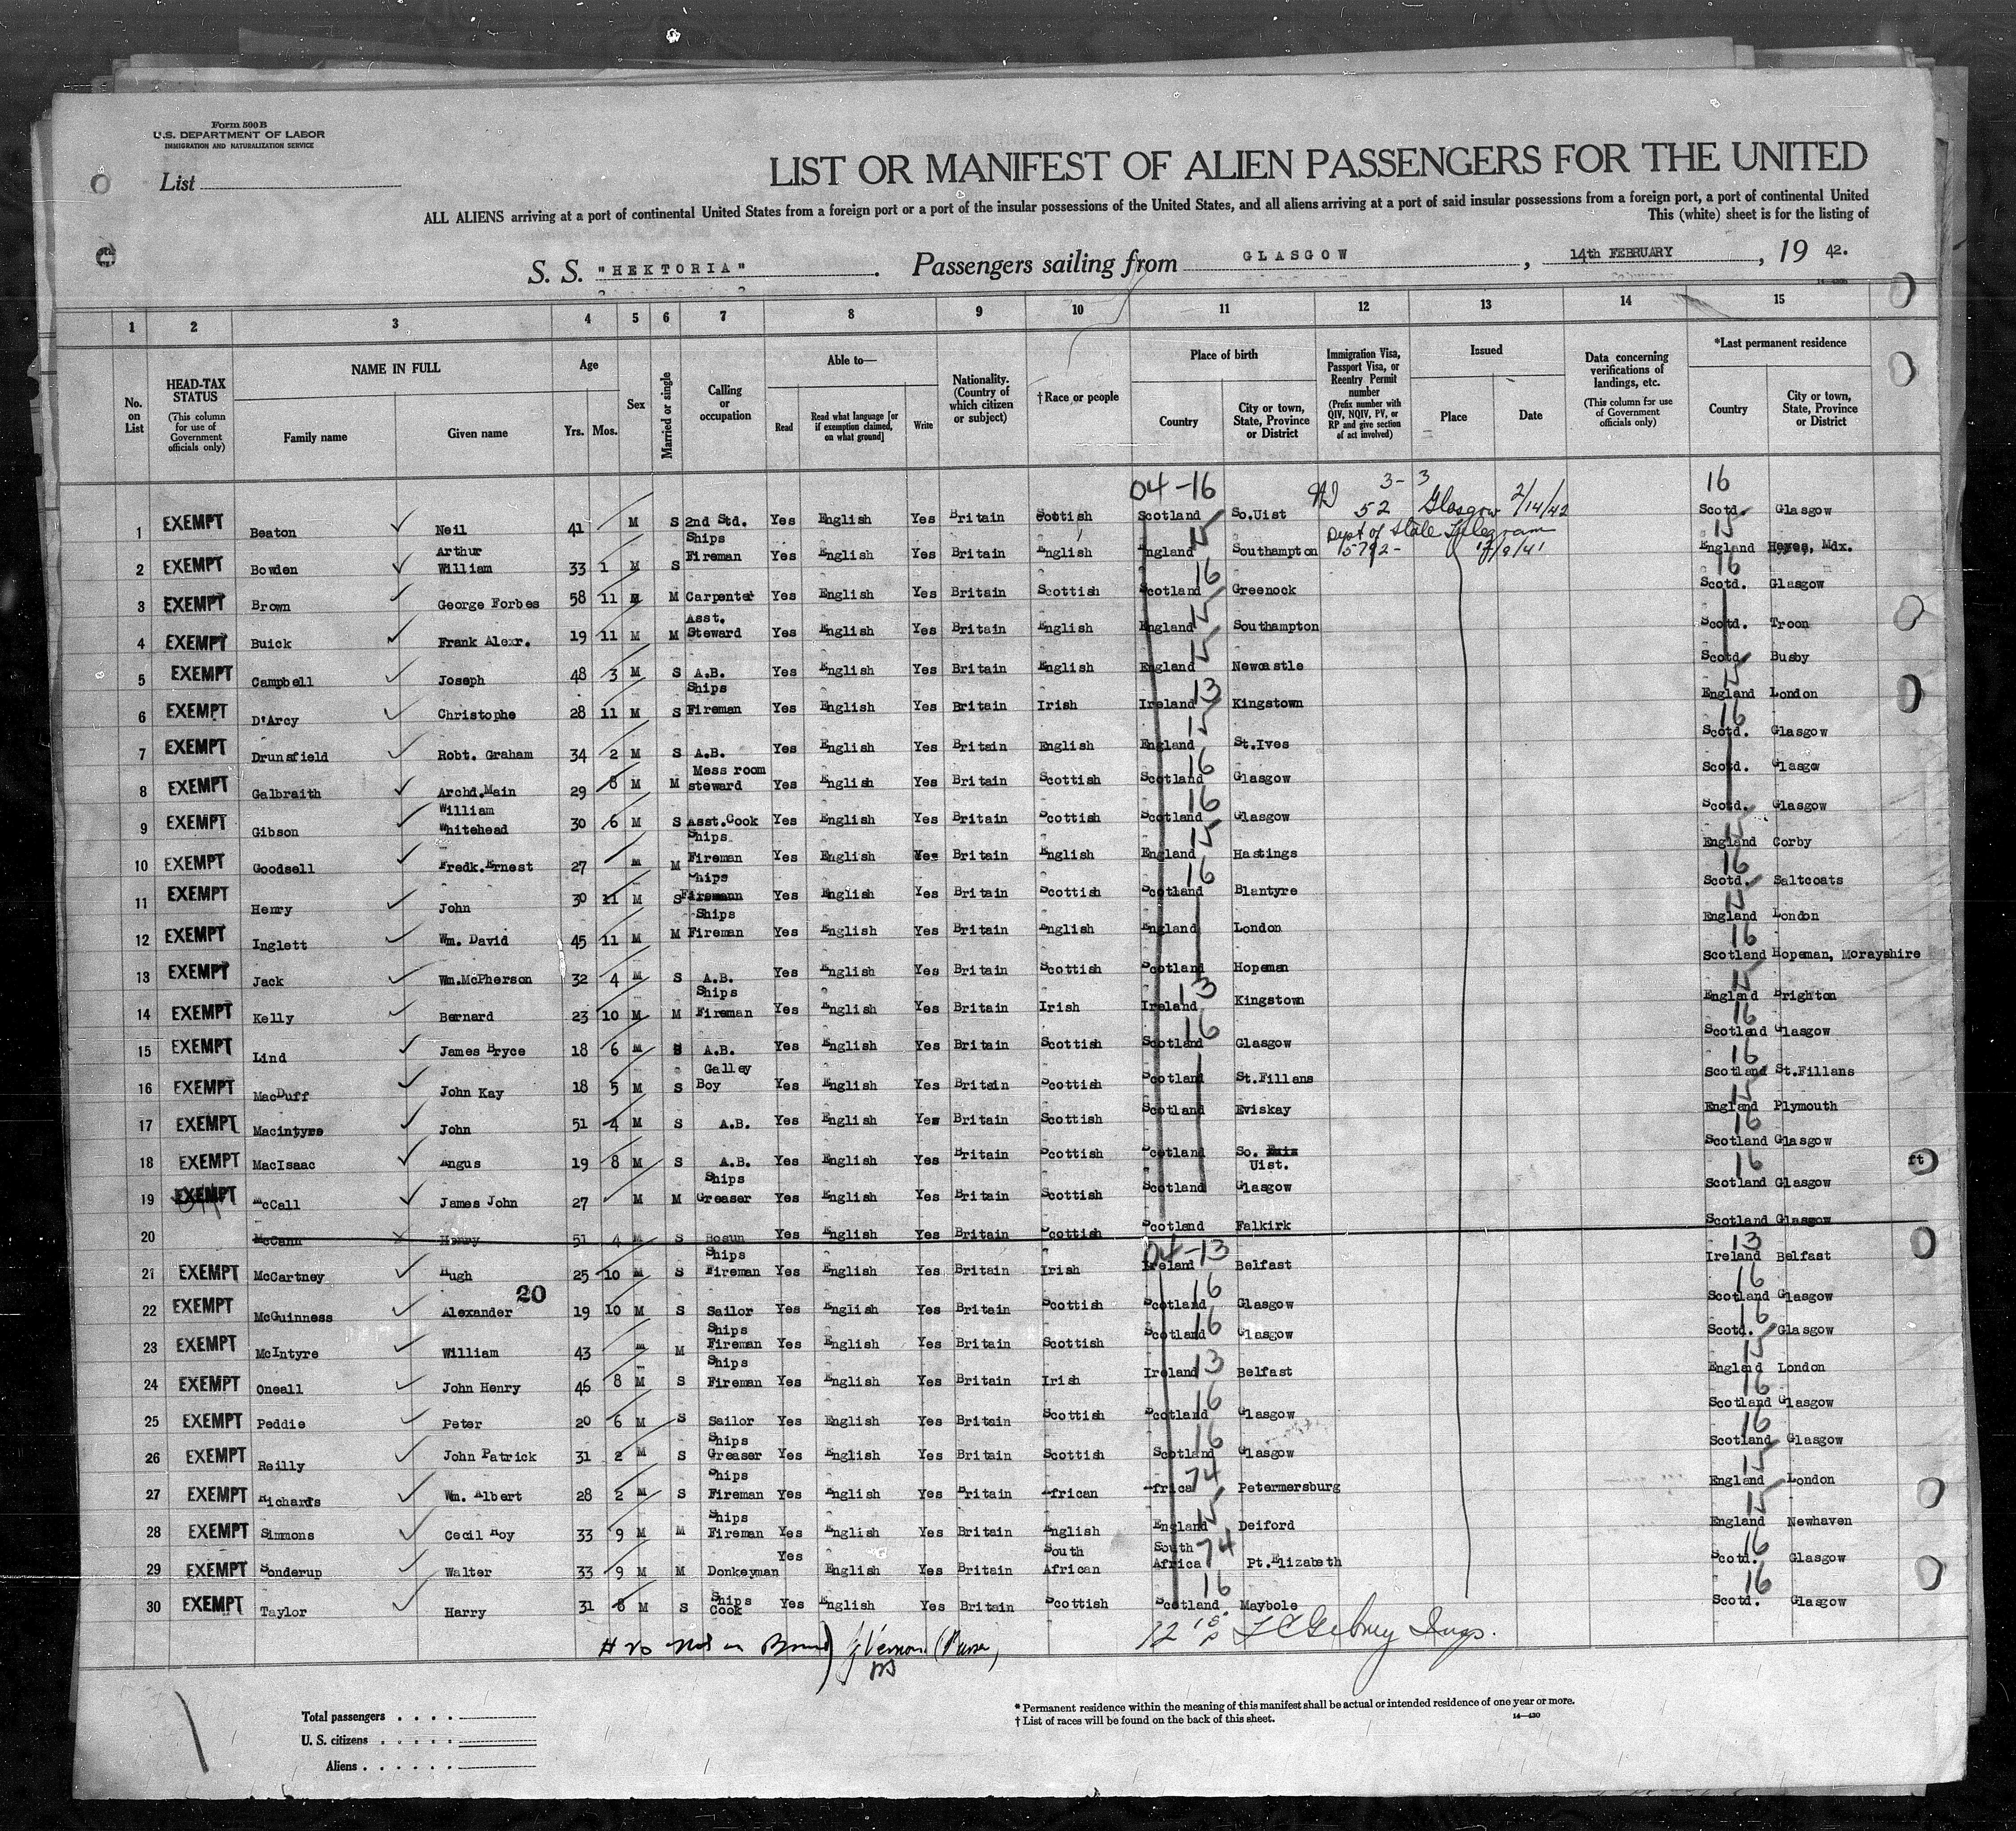 Form 500 B
U.S. DEPARTMENT OF LABOR
IMMIGRATION AND NATURALIZATION SERVICE
List
LIST OR MANIFEST OF ALIEN PASSENGERS FOR THE UNITED
ALL ALIENS arriving at a port of continental United States from a foreign port or a port of the insular possessions of the United States, and all aliens arriving at a port of said insular possessions from a foreign port, a port of continental United
This (white) sheet is for the listing of
S. S. "HEKTORIA" . Passengers sailing from GLASGOW , 14th FEBRUARY , 19 42.
1 2 3 4 5 6 7 8 9 10 11 12 13 14 15
No. on List
HEAD-TAX STATUS (This column for use of Government officials only)
NAME IN FULL Family name Given name
Age Yrs. Mos.
Sex
Married or single
Calling or occupation
Able to— Read Read what language [or if exemption claimed, on what ground] Write
Nationality. (Country of which citizen or subject)
†Race or people
Place of birth Country City or town, State, Province or District
Immigration Visa, Passport Visa, or Reentry Permit number (Prefix number with QIV, NQIV, PV, or RP and give section of act involved)
Issued Place Date
Data concerning verifications of landings, etc. (This column for use of Government officials only)
*Last permanent residence Country City or town, State, Province or District
04-16 3-3 16
1 EXEMPT Beaton Neil 41 M S 2nd Std. Yes English Yes Britain Scottish Scotland So.Uist 52 Glasgow 2/14/42 Scotd. Glasgow
15 Dept of State Telegram 15
2 EXEMPT Bowden Arthur William 33 1 M S Ships Fireman Yes English Yes Britain English England Southampton 5792- England Hayes, Mdx.
16 16
3 EXEMPT Brown George Forbes 58 11 M M Carpenter Yes English Yes Britain Scottish Scotland Greenock Scotd. Glasgow
15
4 EXEMPT Buick Frank Alexr. 19 11 M M Asst. Steward Yes English Yes Britain English England Southampton Scotd. Troon
15
5 EXEMPT Campbell Joseph 48 3 M S A.B. Yes English Yes Britain English England Newcastle Scotd. Busby
13 15
6 EXEMPT D'Arcy Christophe 28 11 M S Ships Fireman Yes English Yes Britain Irish Ireland Kingstown England London
15 16
7 EXEMPT Drunsfield Robt. Graham 34 2 M S A.B. Yes English Yes Britain English England St.Ives Scotd. Glasgow
16
8 EXEMPT Galbraith Archd.Main 29 8 M M Mess room steward Yes English Yes Britain Scottish Scotland Glasgow Scotd. Glasgow
16
9 EXEMPT Gibson William Whitehead 30 6 M S Asst.Cook Yes English Yes Britain Scottish Scotland Glasgow Scotd. Glasgow
15 15
10 EXEMPT Goodsell Fredk.Ernest 27 M M Ships Fireman Yes English Yes Britain English England Hastings England Corby
16 16
11 EXEMPT Henry John 30 11 M S Ships Firemann Yes English Yes Britain Scottish Scotland Blantyre Scotd. Saltcoats
15
12 EXEMPT Inglett Wm. David 45 11 M M Ships Fireman Yes English Yes Britain English England London England London
16
13 EXEMPT Jack Wm.McPherson 32 4 M S A.B. Yes English Yes Britain Scottish Scotland Hopeman Scotland Hopeman, Morayshire
13 15
14 EXEMPT Kelly Bernard 23 10 M M Ships Fireman Yes English Yes Britain Irish Ireland Kingstown England Brighton
16 16
15 EXEMPT Lind James Bryce 18 6 M S A.B. Yes English Yes Britain Scottish Scotland Glasgow Scotland Glasgow
16
16 EXEMPT MacDuff John Kay 18 5 M S Galley Boy Yes English Yes Britain Scottish Scotland St.Fillans Scotland St.Fillans
15
17 EXEMPT Macintyre John 51 4 M S A.B. Yes English Yes Britain Scottish Scotland Eviskay England Plymouth
16
18 EXEMPT MacIsaac Angus 19 8 M S A.B. Yes English Yes Britain Scottish Scotland So. Uist. Scotland Glasgow
16
19 EXEMPT McCall James John 27 M M Ships Greaser Yes English Yes Britain Scottish Scotland Glasgow Scotland Glasgow
20 McCann Henry 51 4 M S Bosun Yes English Yes Britain Scottish Scotland Falkirk Scotland Glasgow
04-13 13
21 EXEMPT McCartney Hugh 25 10 M S Ships Fireman Yes English Yes Britain Irish Ireland Belfast Ireland Belfast
20 16 16
22 EXEMPT McGuinness Alexander 19 10 M S Sailor Yes English Yes Britain Scottish Scotland Glasgow Scotland Glasgow
16 16
23 EXEMPT McIntyre William 43 M M Ships Fireman Yes English Yes Britain Scottish Scotland Glasgow Scotd. Glasgow
13 15
24 EXEMPT Oneall John Henry 46 8 M S Ships Fireman Yes English Yes Britain Irish Ireland Belfast England London
16 16
25 EXEMPT Peddie Peter 20 6 M S Sailor Yes English Yes Britain Scottish Scotland Glasgow Scotland Glasgow
16 16
26 EXEMPT Reilly John Patrick 31 2 M S Ships Greaser Yes English Yes Britain Scottish Scotland Glasgow Scotland Glasgow
74 15
27 EXEMPT Richards Wm. Albert 28 2 M S Ships Fireman Yes English Yes Britain African Africa Petermersburg England London
15 15
28 EXEMPT Simmons Cecil Roy 33 9 M M Ships Fireman Yes English Yes Britain English England Deiford England Newhaven
74 16
29 EXEMPT Sonderup Walter 33 9 M M Donkeyman Yes English Yes Britain South African South Africa Pt.Elizabeth Scotd. Glasgow
16 16
30 EXEMPT Taylor Harry 31 8 M S Ships Cook Yes English Yes Britain Scottish Scotland Maybole Scotd. Glasgow
# 20 not on Board) Vernon (Purser)
Total passengers . . . .
U. S. citizens . . . . . .
Aliens . . . . . .
* Permanent residence within the meaning of this manifest shall be actual or intended residence of one year or more.
† List of races will be found on the back of this sheet.
14—430